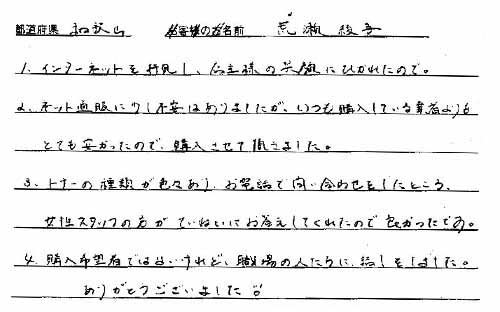 都道府県 和歌山 お客様のお名前 荒瀬 綾子
1. インターネットを拝見し、会主様の笑顔にひかれたので。
2. ネット通販に少し不安はありましたが、いつも購入している業者よりも
とても安かったので、購入させて頂きました。
3. トナーの種類が色々あり、お電話で問い合わせをしたところ、
女性スタッフの方がていねいにお答えしてくれたので良かったです。
4. 購入希望者ではないけれど、職場の人たちに、話しをしました。
ありがとうございました